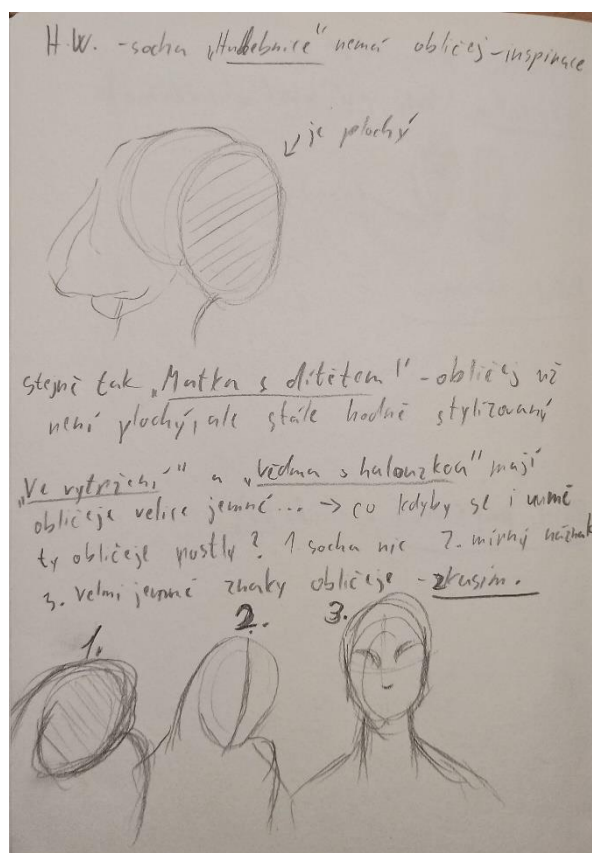 H.W. - socha „Hudebnice" nemá obličej - inspirace
je plochý
stejně tak „Matka s dítětem" - obličej už
není plochý, ale stále hodně stylizovaný
„Ve vytržení" a „vědma s halouzkou" mají
obličeje velice jemné... → co kdyby se i u mě
ty obličeje rostly? 1. socha nic 2. mírný náznak
3. velmi jemné znaky obličeje - zkusím.
1.
2.
3.